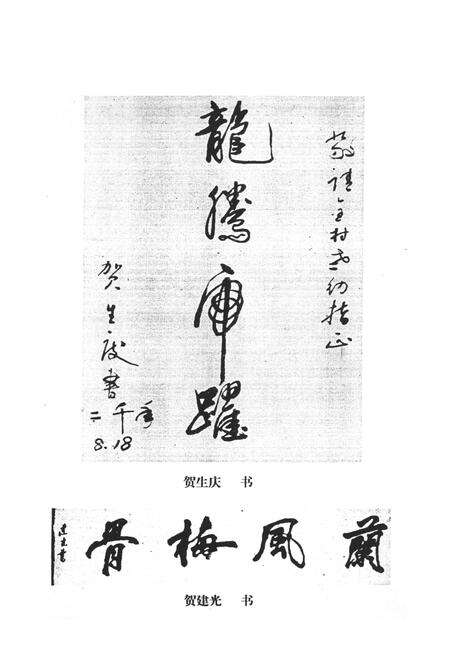 敬请全村老幼指正
龍騰虎躍
贺生庆書
二千年
8.18
贺生庆 书
蘭風梅骨
建光書
贺建光 书